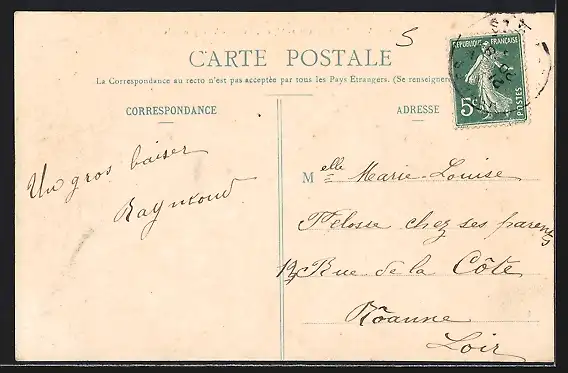 5
CARTE POSTALE
La Correspondance au recto n'est pas acceptée par tous les Pays Etrangers. (Se renseigner
CORRESPONDANCE
ADRESSE
REPUBLIQUE FRANÇAISE
5c
POSTES
Un gros baiser
Raymond
Melle Marie-Louise
Pelosse chez ses parents
12 Rue de la Côte
Roanne
Loir